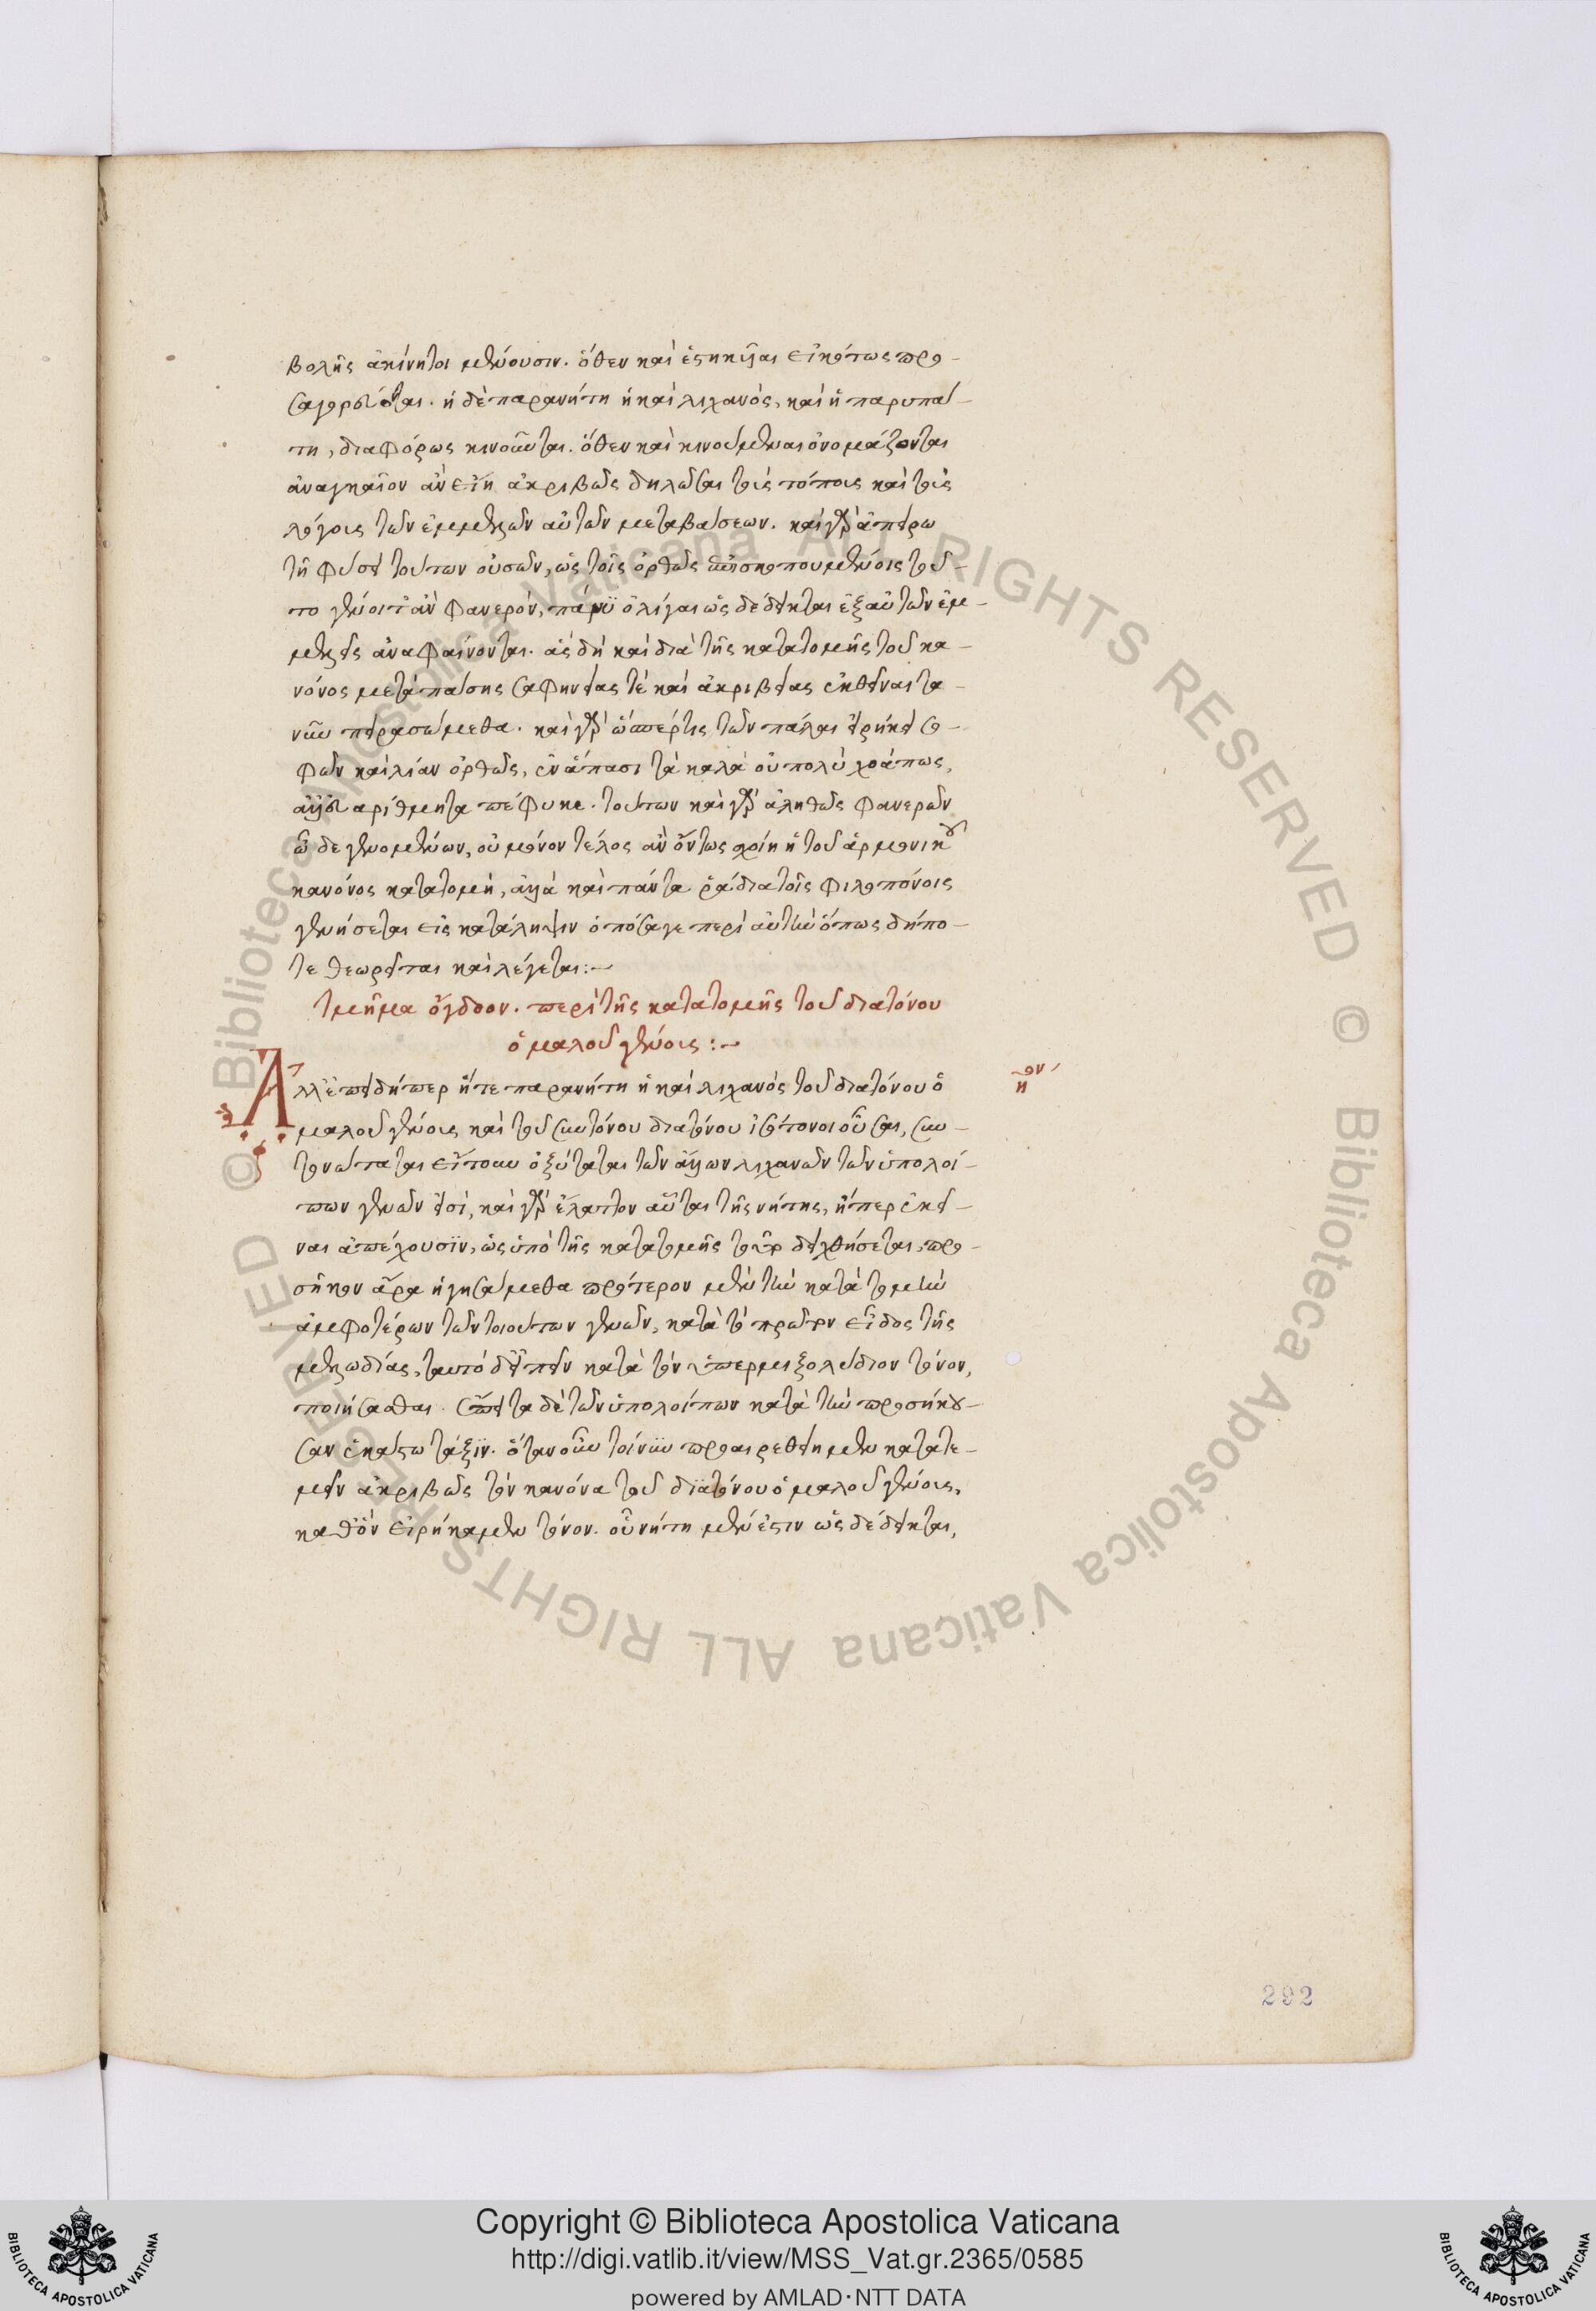 βολῆς ἀκίνητοι μένουσιν. ὅθεν καὶ ἑστηκυῖαι εἰκότως προ-
σαγορεύονται. ἡ δὲ παρανήτη ἡ καὶ λιχανὸς, καὶ ἡ παρυπά-
τη, διαφόρως κινοῦνται. ὅθεν καὶ κινούμεναι ὀνομάζονται
ἀναγκαῖον ἂν εἴη ἀκριβῶς δηλῶσαι τοὺς τόπους καὶ τοὺς
λόγους τῶν ἐμμελῶν αὐτῶν μεταβάσεων. καὶ γὰρ ἀπείρω
τῇ φύσει τούτων οὐσῶν, ὡς τοῖς ὀρθῶς ἐπισκοπουμένοις τοῦ-
το γένοιτ' ἂν φανερὸν, πάνυ ὀλίγαι ὡς δέδεικται ἐξ αὐτῶν ἐμ-
μελεῖς ἀναφαίνονται. ἃς δὴ καὶ διὰ τῆς κατατομῆς τοῦ κα-
νόνος μετὰ πάσης σαφηνείας τὲ καὶ ἀκριβείας ἐκθεῖναι τα-
νῦν πειρασώμεθα. καὶ γὰρ ὥσπέρ τις τῶν πάλαι εἴρηκε σο-
φῶν καὶ λίαν ὀρθῶς, ἐν ἅπασι τὰ καλὰ οὐ πολὺ χοάπως,
ἀλλ' εὐαρίθμητα πέφυκε. τούτων καὶ γὰρ ἀληθῶς φανερῶν
ὧδε γενομένων, οὐ μόνον τέλος ἂν ὄντως σχοίη ἡ τοῦ ἁρμονικοῦ
κανόνος κατατομὴ, ἀλλὰ καὶ πάντα ῥάδια τοῖς φιλοπόνοις
γενήσεται εἰς κατάληψιν ὁπόσα γε περὶ αὐτὴν ὅπως δήπο-
τε θεωρεῖται καὶ λέγεται:~
τμῆμα ὄγδοον. περὶ τῆς κατατομῆς τοῦ διατόνου
ὁμαλοῦ γένους :~
Ἀλλ' ἐπειδήπερ ἥτε παρανήτη ἡ καὶ λιχανὸς τοῦ διατόνου ὁ
μαλοῦ γένους καὶ τοῦ συντόνου διατόνου ἰσότονοι οὖσαι, συν-
τονώταται εἴτουν ὀξύταται τῶν ἄλλων λιχανῶν τῶν ὑπολοί-
πων γενῶν εἰσὶ, καὶ γὰρ ἔλαττον αὗται τῆς νήτης, ἤπερ ἐκεῖ-
ναι ἀπέχουσϊν, ὡς ὑπὸ τῆς κατατομῆς δειχθήσεται, προ-
σῆκον ἄρα ἡγησάμεθα πρότερον μὲν τὴν κατὰ τομὴν
ἀμφοτέρων τῶν τοιούτων γενῶν, κατὰ τὸ πρῶτον εἶδος τῆς
μελωδίας, ταυτὸ δ' εἰπεῖν κατὰ τὸν ὑπερμιξολύδιον τόνον,
ποιήσασθαι. ἔπειτα δὲ τῶν ὑπολοίπων κατὰ τὴν προσήκου-
σαν ἑκάστω τάξϊν. ὅταν οὖν τοίνϋν προαιρεθείημεν κατατε-
μεῖν ἀκριβῶς τὸν κανόνα τοῦ διατόνου ὁμαλοῦ γένους,
καθ' ὃν εἰρήκαμεν τόνον. οὗ νήτη μέν ἐστιν ὡς δέδεικται,
ον
η
292
© Biblioteca Apostolica Vaticana ALL RIGHTS RESERVED © Biblioteca Apostolica Vaticana ALL RIGHTS RESERVED
Copyright © Biblioteca Apostolica Vaticana
http://digi.vatlib.it/view/MSS_Vat.gr.2365/0585
powered by AMLAD·NTT DATA
BIBLIOTECA APOSTOLICA VATICANA
BIBLIOTECA APOSTOLICA VATICANA